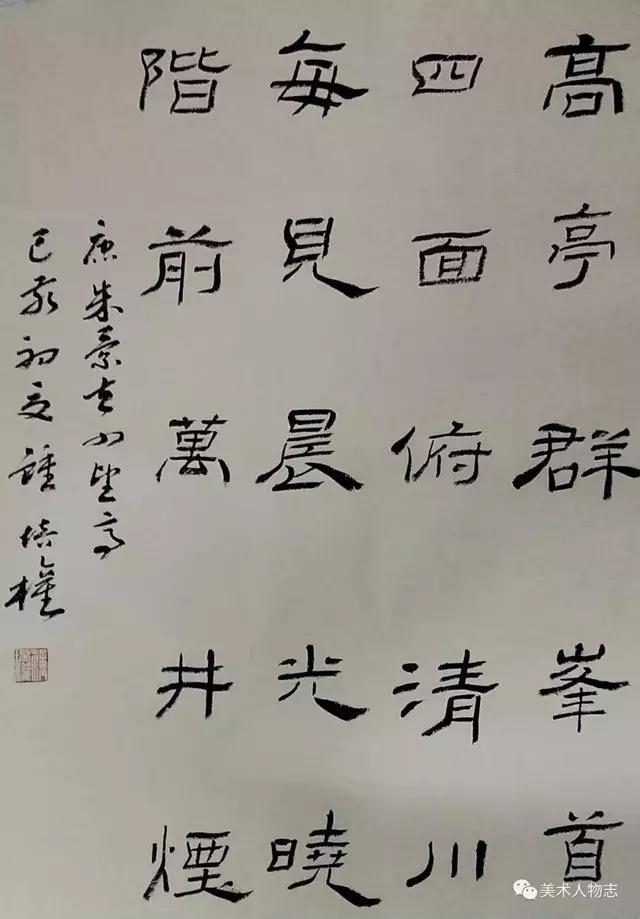 高亭群峯首
四面俯清川
每見晨光曉
階前萬井煙
唐朱景玄四望亭
己亥初夏鍾培權
美术人物志